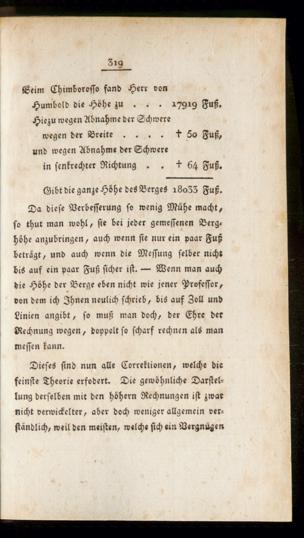 319
Beim Chimborosso fand Herr von
Humbold die Höhe zu . . . 17919 Fuß.
Hiezu wegen Abnahme der Schwere
wegen der Breite . . . . † 50 Fuß,
und wegen Abnahme der Schwere
in senkrechter Richtung . . † 64 Fuß.
Gibt die ganze Höhe des Berges 18033 Fuß.
Da diese Verbesserung so wenig Mühe macht,
so thut man wohl, sie bei jeder gemessenen Berg-
höhe anzubringen, auch wenn sie nur ein paar Fuß
beträgt, und auch wenn die Messung selber nicht
bis auf ein paar Fuß sicher ist. — Wenn man auch
die Höhe der Berge eben nicht wie jener Professor,
von dem ich Ihnen neulich schrieb, bis auf Zoll und
Linien angibt, so muß man doch, der Ehre der
Rechnung wegen, doppelt so scharf rechnen als man
messen kann.
Dieses sind nun alle Correktionen, welche die
feinste Theorie erfodert. Die gewöhnliche Darstel-
lung derselben mit den höhern Rechnungen ist zwar
nicht verwickelter, aber doch weniger allgemein ver-
ständlich, weil den meisten, welche sich ein Vergnügen